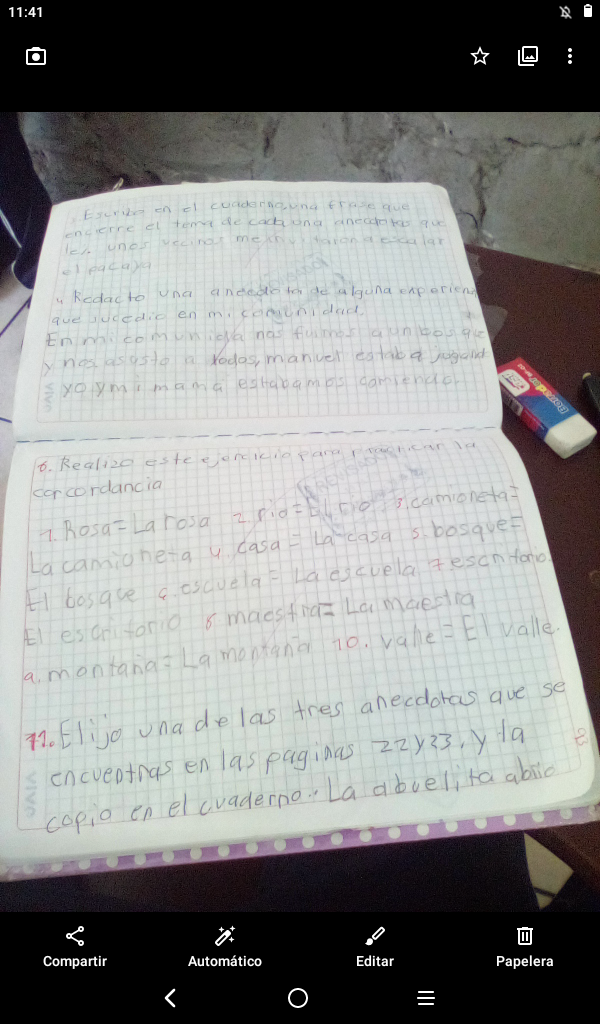 11:41
Escribo en el cuaderno, una frase que
encierre el tema de cada una anecdotas que
lei. unos vecinos me invitaron a escalar
el pacaya
4. Redacto una anecdota de alguna experienc
que sucedio en mi comunidad.
En mi comunida nos fuimos a un bosque
y nos asusto a todos, manuel estaba jugand
yo y mi mama estabamos comiendo.
6. Realizo este ejercicio para practicar la
concordancia
1. Rosa = La rosa 2. rio = El rio 3. camioneta =
La camioneta 4. casa = La casa 5. bosque =
El bosque 6. escuela = La escuela 7 escritorio
El escritorio 8 maestra = La maestra
9. montaña = La montaña 10. valle = El valle.
11. Elijo una de las tres anecdotas que se
encuentras en las paginas 22 y 23, y la
copio en el cuaderno.. La abuelita abrio
Borrador
Compartir
Automático
Editar
Papelera